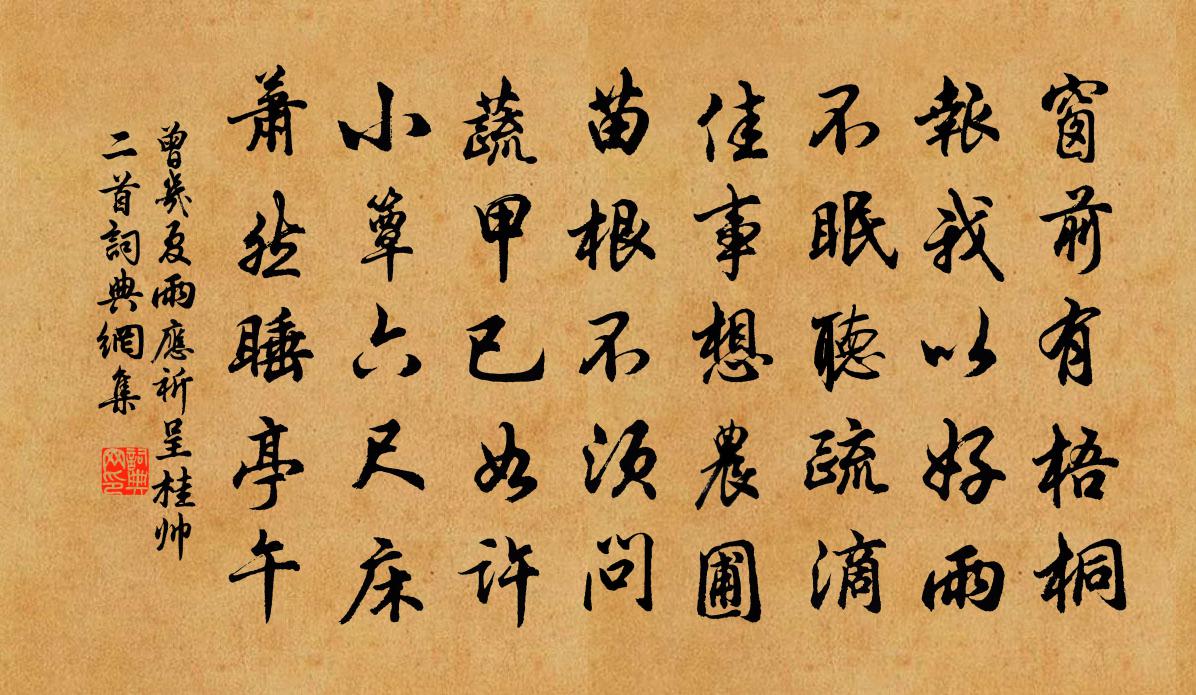 窗前有梧桐
報我以好雨
不眠聽疏滴
佳事想農圃
苗根不須問
蔬甲已如許
小簟六尺床
蕭然睡亭午
曾幾夏雨應祈呈桂帅
二首詞典網集
詞典
网印